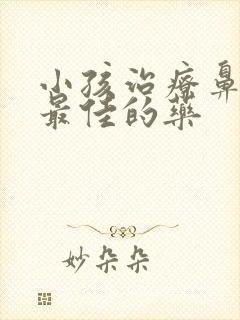 小孩治疗鼻
最佳的药
妙朵朵